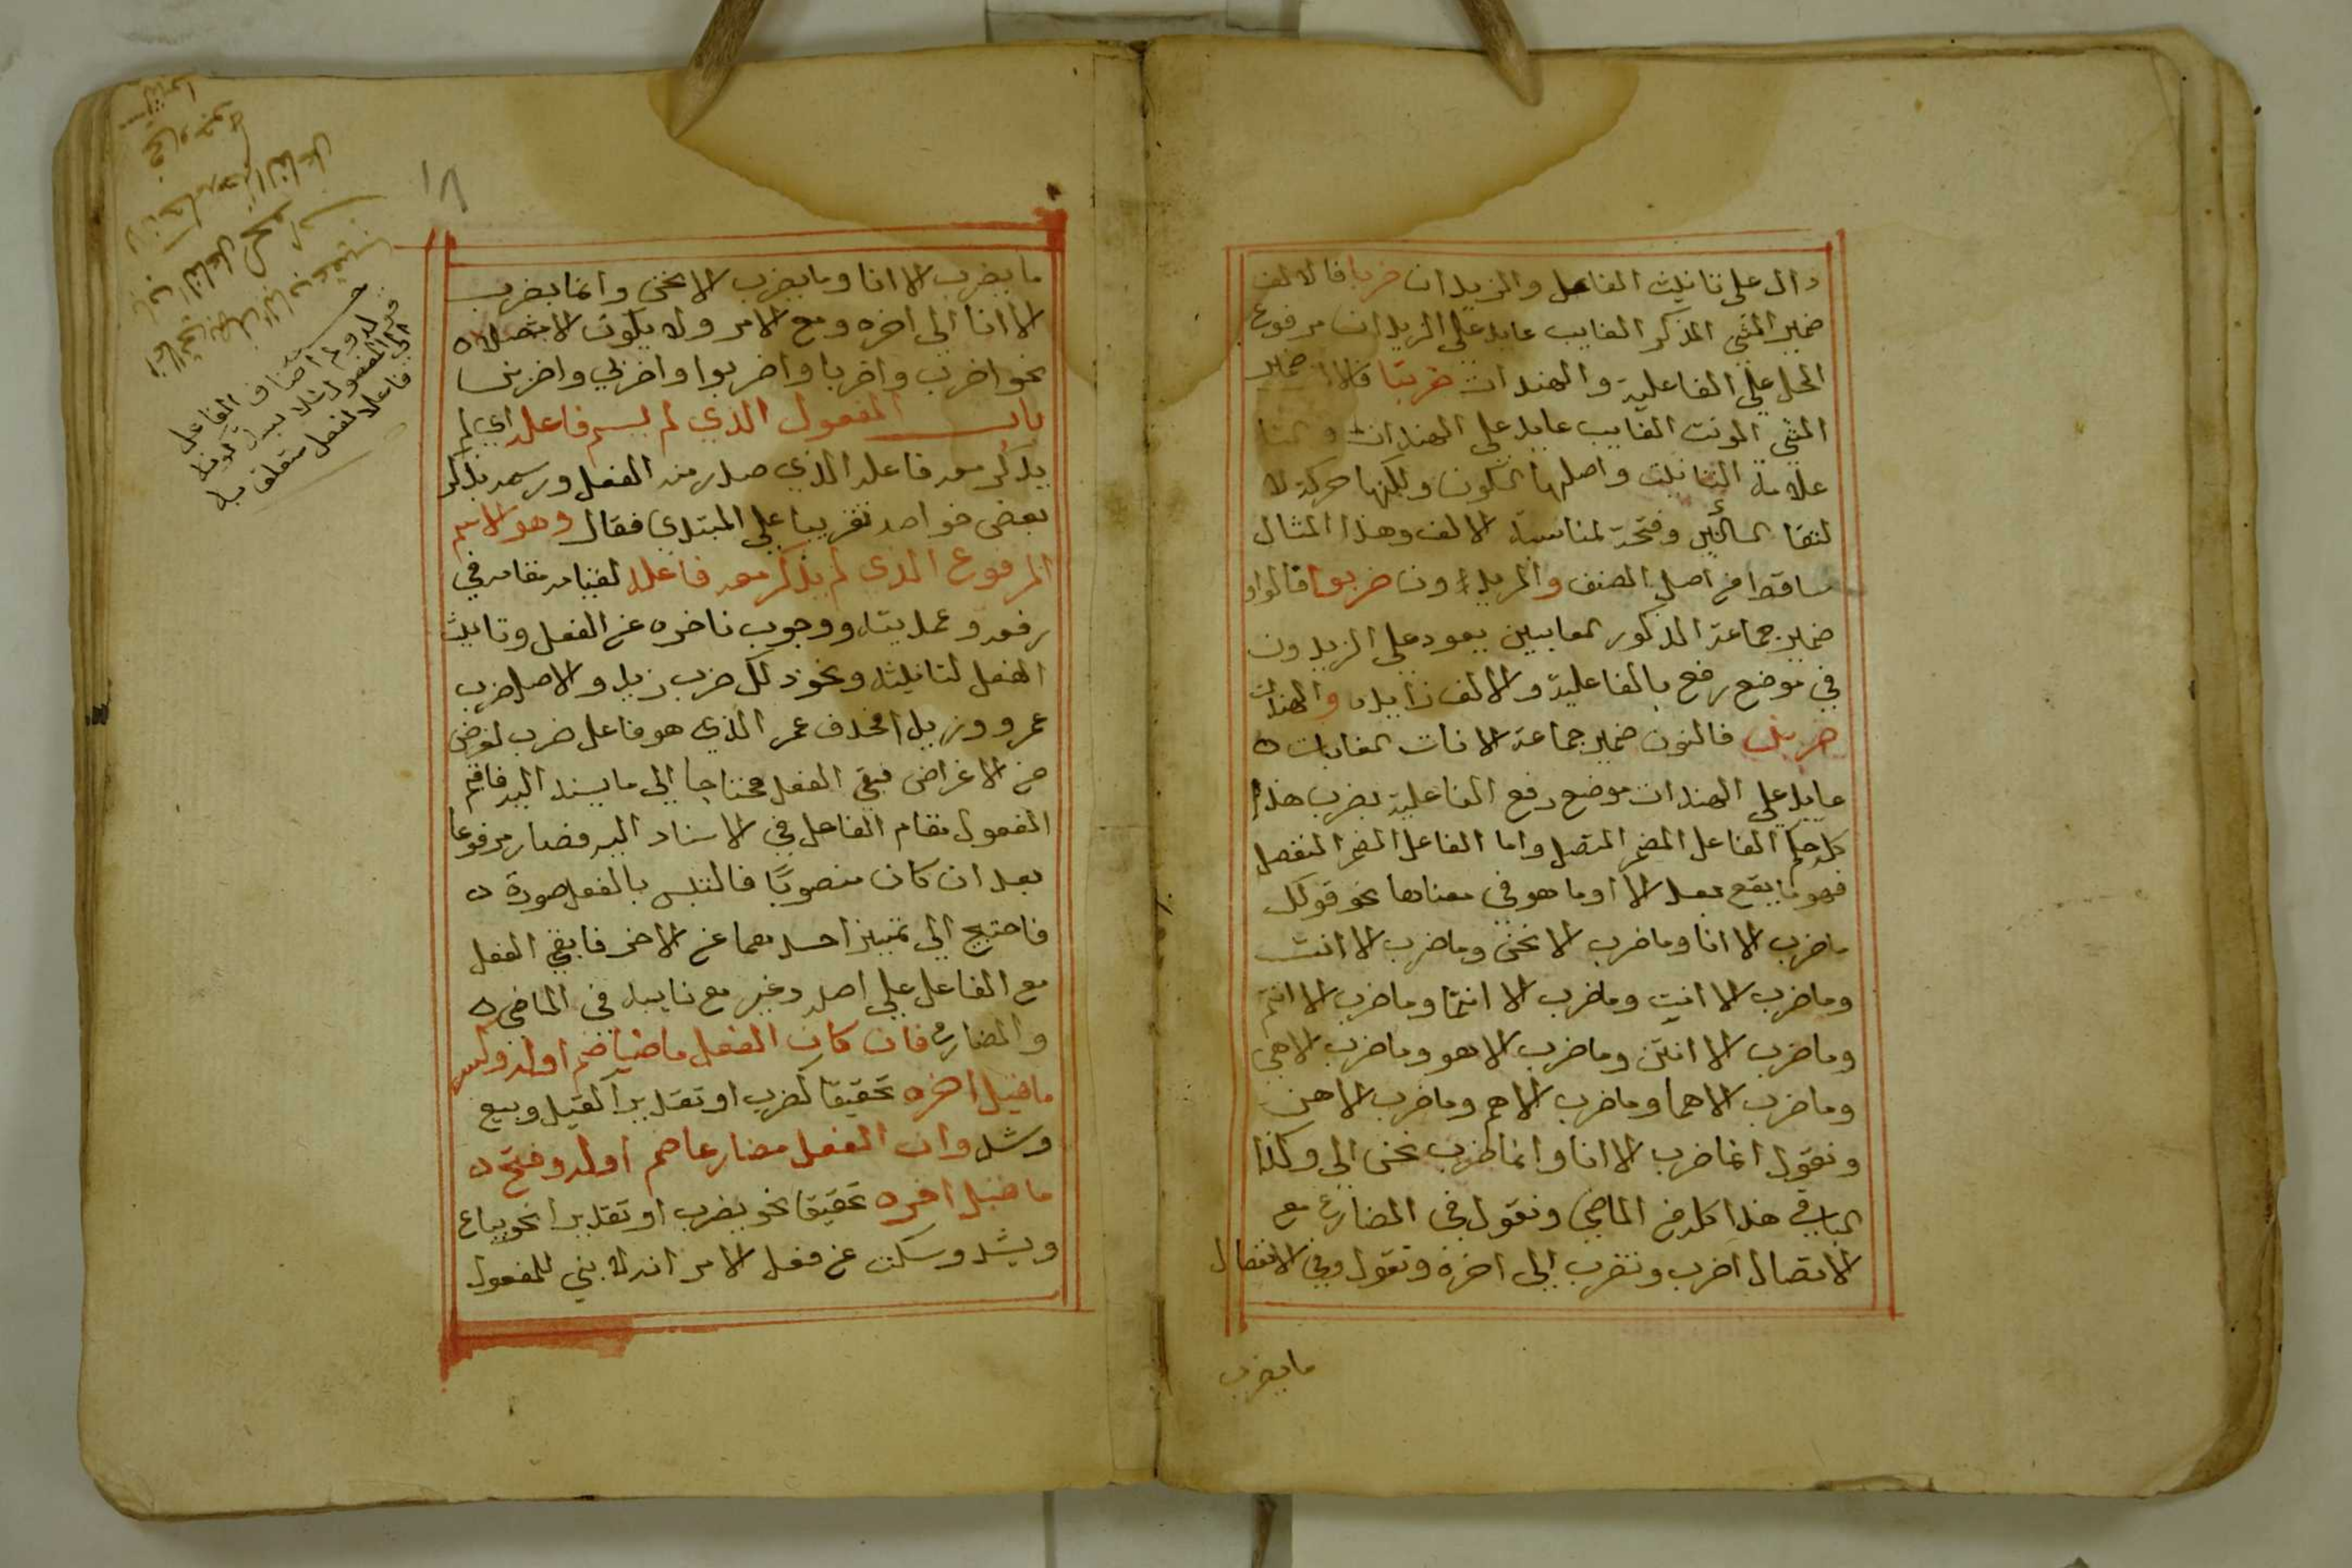 دال على تانيث الفاعل والزيدان ضربا فالالف
ضمير المثنى المذكر الغايب عايد على الزيدان مرفوع
المحل على الفاعلية والهندات ضربتا فالالف ضمير
المثنى المونث الغايب عايد على الهندات والتا
علامة التانيث واصلها السكون ولكنها حركة لا
لتقا الساكنين وفتحة لمناسبة الالف وهذا المثال
ساقط من اصل المصنف والزيدون ضربوا فالواو
ضمير جماعة المذكور الغايبين يعود على الزيدون
في موضع رفع بالفاعلية والالف زايده والهندات
ضربن فالنون ضمير جماعة الاناث الغايبات ه
عايد على الهندات موضع رفع الفاعلية بضرب هذا
كله حكم الفاعل المضمر المتصل واما الفاعل المضمر المنفصل
فهو ما يقع بعد الا او ما هو في معناها نحو قولك
ما ضرب الا انا وما ضرب الا نحن وما ضرب الا انت
وما ضرب الا انتِ وما ضرب الا انتما وما ضرب الا انتم
وما ضرب الا انتن وما ضرب الا هو وما ضرب الا هي
وما ضرب الا هما وما ضرب الا هم وما ضرب الا هن
وتقول انما ضرب الا انا وانما ضرب نحن الى وكذا
الباقي هذا كله في الماضي وتقول في المضارع مع
الاتصال اضرب ونضرب الى اخره وتقول وفي الانفصال
ما يضرب
ما يضرب الا انا وما يضرب الا نحن وانما يضرب
الا انا الى اخره ومع الامر ولا يكون الا متصلا ه
نحو اضرب واضربا واضربوا واضربي واضربن
باب المفعول الذي لم يسم فاعله اي لم
يذكر معه فاعله الذي صدر منه الفعل ورسمه بذكر
بعض خواصه تقريبا على المبتدي فقال وهو الاسم
المرفوع الذي لم يذكر معه فاعله لقيامه مقامه في
رفعه وعمديته ووجوب تاخره عن الفعل وتانيث
الفعل لتانيثه ونحو ذلك ضرب زيد والاصل ضرب
عمرو زيدا فحذف عمر الذي هو فاعل ضرب لغرض
من الاغراض فبقي الفعل محتاجا الى ما يسند اليه فاقيم
المفعول مقام الفاعل في الاسناد اليه فصار مرفوعا
بعد ان كان منصوبًا فالتبس بالفعل صورة ه
فاحتيج الى تمييز احدهما عن الاخر فابقي الفعل
مع الفاعل على اصله وغير مع نايبه في الماضي ه
والمضارع فان كان الفعل ماضيا ضم اوله وكسر
ما قبل اخره تحقيقا كضرب او تقديرا كقيل وبيع
وشد وان الفعل مضارعا ضم اوله وفتح ه
ما قبل اخره تحقيقا نحو يضرب او تقديرا نحو يباع
ويشد وسكت عن فعل الامر انه لا يبني للمفعول
اضاف الفاعل
فاعلا لفعل متعلق به